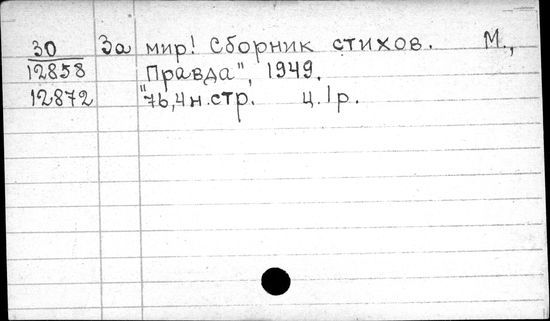 30 За мир! Сборник стихов. М.,
12858 Правда", 1949.
12872 "76,4 н.стр. ц. 1 р.